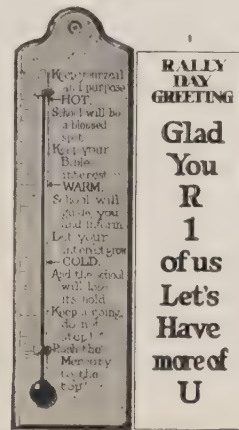 Keep your zeal
and purpose
HOT.
School will be
a blessed
spot.
Keep your
Bible
interest
WARM.
School will
guide you
and inform
Let your
interest grow
COLD.
And the school
will lose
its hold
Keep a going,
do not
stop!
Push the
Mercury
to the
top!
RALLY
DAY
GREETING
Glad
You
R
1
of us
Let's
Have
more of
U